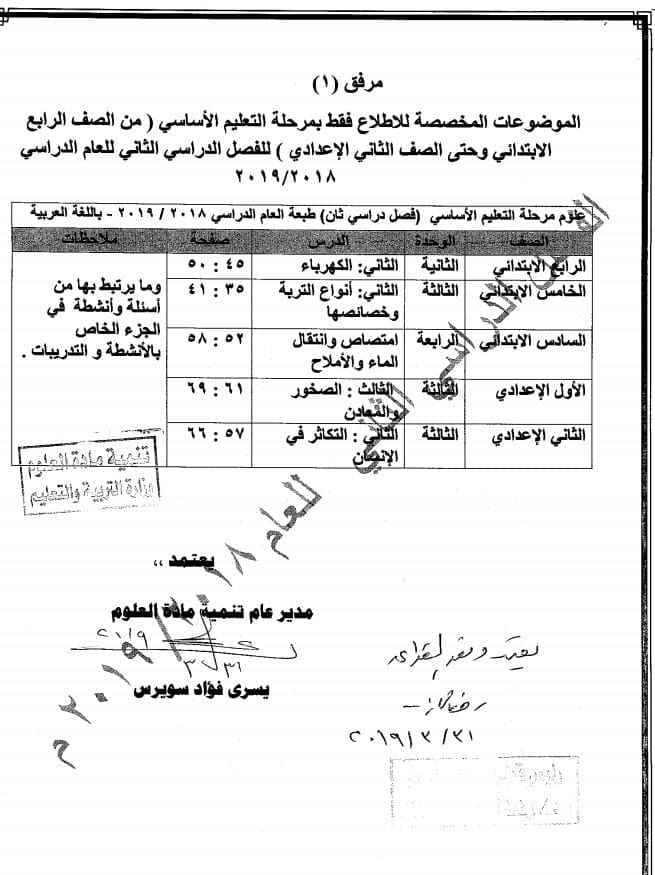 مرفق (١)
الموضوعات المخصصة للاطلاع فقط بمرحلة التعليم الأساسي ( من الصف الرابع
الابتدائي وحتى الصف الثاني الإعدادي ) للفصل الدراسي الثاني للعام الدراسي
٢٠١٩/٢٠١٨
علوم مرحلة التعليم الأساسي (فصل دراسي ثان) طبعة العام الدراسي ٢٠١٨ / ٢٠١٩ - باللغة العربية
الصف الوحدة الدرس صفحة ملاحظات
الرابع الابتدائي الثانية الثاني: الكهرباء ٤٥ : ٥٠
الخامس الابتدائي الثالثة الثاني: أنواع التربة ٣٥ : ٤١
وخصائصها
السادس الابتدائي الرابعة امتصاص وانتقال ٥٢ : ٥٨
الماء والأملاح
الأول الإعدادي الثالثة الثالث : الصخور ٦١ : ٦٩
والمعادن
الثاني الإعدادي الثالثة الثاني : التكاثر في ٥٧ : ٦٦
الإنسان
وما يرتبط بها من
أسئلة وأنشطة في
الجزء الخاص
بالأنشطة و التدريبات .
الفصل الدراسي الثاني للعام ٢٠١٨ / ٢٠١٩ م
تنمية مادة العلوم
وزارة التربية والتعليم
يعتمد ,,
مدير عام تنمية مادة العلوم
٢٠١٩
٣١
يسرى فؤاد سويرس
يعتمد
٢٠١٩/٣/٣١